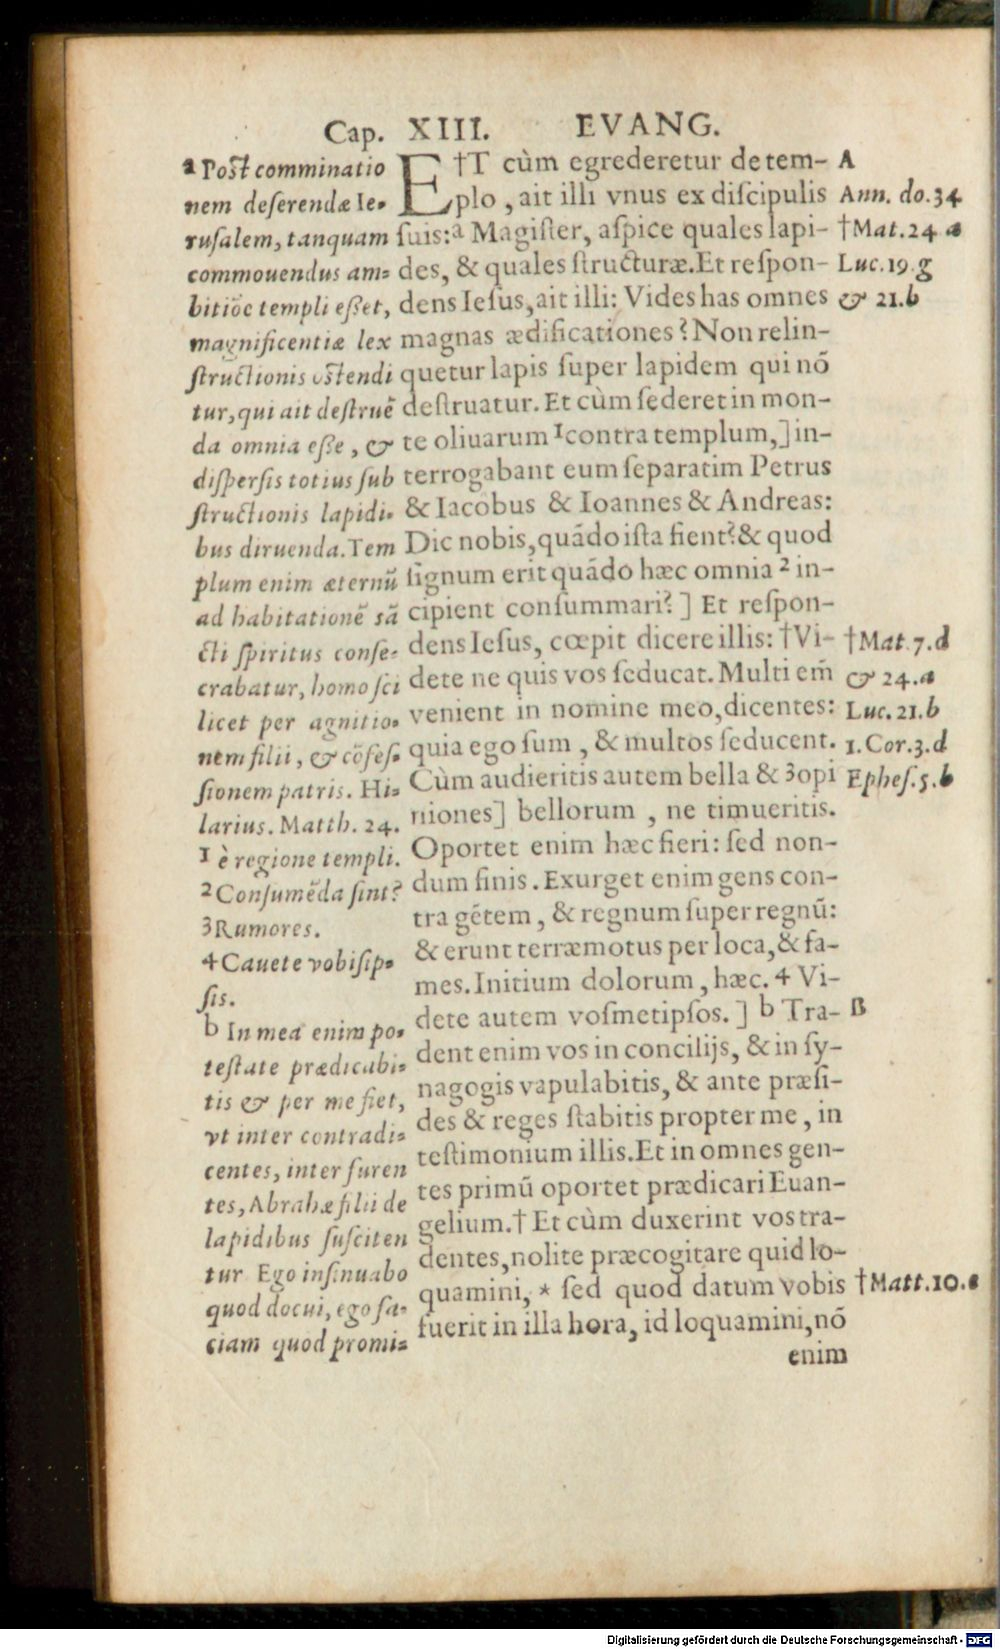 Cap. XIII. EVANG.
a Poſt comminatio
nem deſerendæ Ie-
ruſalem, tanquam
commouendus am-
bitiõe templi eßet,
magnificentiæ lex
ſtructionis oſtendi
tur, qui ait deſtruẽ
da omnia eße, & 
diſperſis totius ſub
ſtructionis lapidi-
bus diruenda. Tem
plum enim æternũ
ad habitationẽ sã
cti ſpiritus conſe-
crabatur, homo ſci
licet per agnitio-
nem filii, & cõfeſ-
ſionem patris. Hi-
larius. Matth. 24.
1 è regione templi.
2 Conſumẽda ſint?
3 Rumores.
4 Cauete vobiſip-
ſis.
b In mea enim po-
teſtate prædicabi-
tis & per me fiet,
vt inter contradi-
centes, inter furen
tes, Abrahæ filii de
lapidibus ſuſciten
tur Ego inſinuabo
quod docui, ego fa-
ciam quod promi-
E†T cùm egrederetur de tem-
plo, ait illi vnus ex diſcipulis
ſuis: a Magiſter, aſpice quales lapi-
des, & quales ſtructuræ. Et reſpon-
dens Ieſus, ait illi: Vides has omnes
magnas ædificationes? Non relin-
quetur lapis ſuper lapidem qui nõ
deſtruatur. Et cùm ſederet in mon-
te oliuarum 1 contra templum,] in-
terrogabant eum ſeparatim Petrus
& Iacobus & Ioannes & Andreas:
Dic nobis, quãdo iſta fient? & quod
ſignum erit quãdo hæc omnia 2 in-
cipient conſummari?] Et reſpon-
dens Ieſus, cœpit dicere illis: †Vi-
dete ne quis vos ſeducat. Multi em̃
venient in nomine meo, dicentes:
quia ego ſum, & multos ſeducent.
Cùm audieritis autem bella & 3 opi
niones] bellorum, ne timueritis.
Oportet enim hæc fieri: ſed non-
dum finis. Exurget enim gens con-
tra gẽtem, & regnum ſuper regnũ:
& erunt terræmotus per loca, & fa-
mes. Initium dolorum, hæc. 4 Vi-
dete autem voſmetipſos.] b Tra-
dent enim vos in concilijs, & in ſy-
nagogis vapulabitis, & ante præſi-
des & reges ſtabitis propter me, in
teſtimonium illis. Et in omnes gen-
tes primũ oportet prædicari Euan-
gelium. † Et cùm duxerint vos tra-
dentes, nolite præcogitare quid lo-
quamini, * ſed quod datum vobis
fuerit in illa hora, id loquamini, nõ
enim
A
Ann. do. 34
†Mat. 24 a
Luc. 19. g
& 21. b
†Mat. 7. d
& 24. a
Luc. 21. b
1. Cor. 3. d
Epheſ. 5. b
B
†Matt. 10.
Digitalisierung gefördert durch die Deutsche Forschungsgemeinschaft - DFG